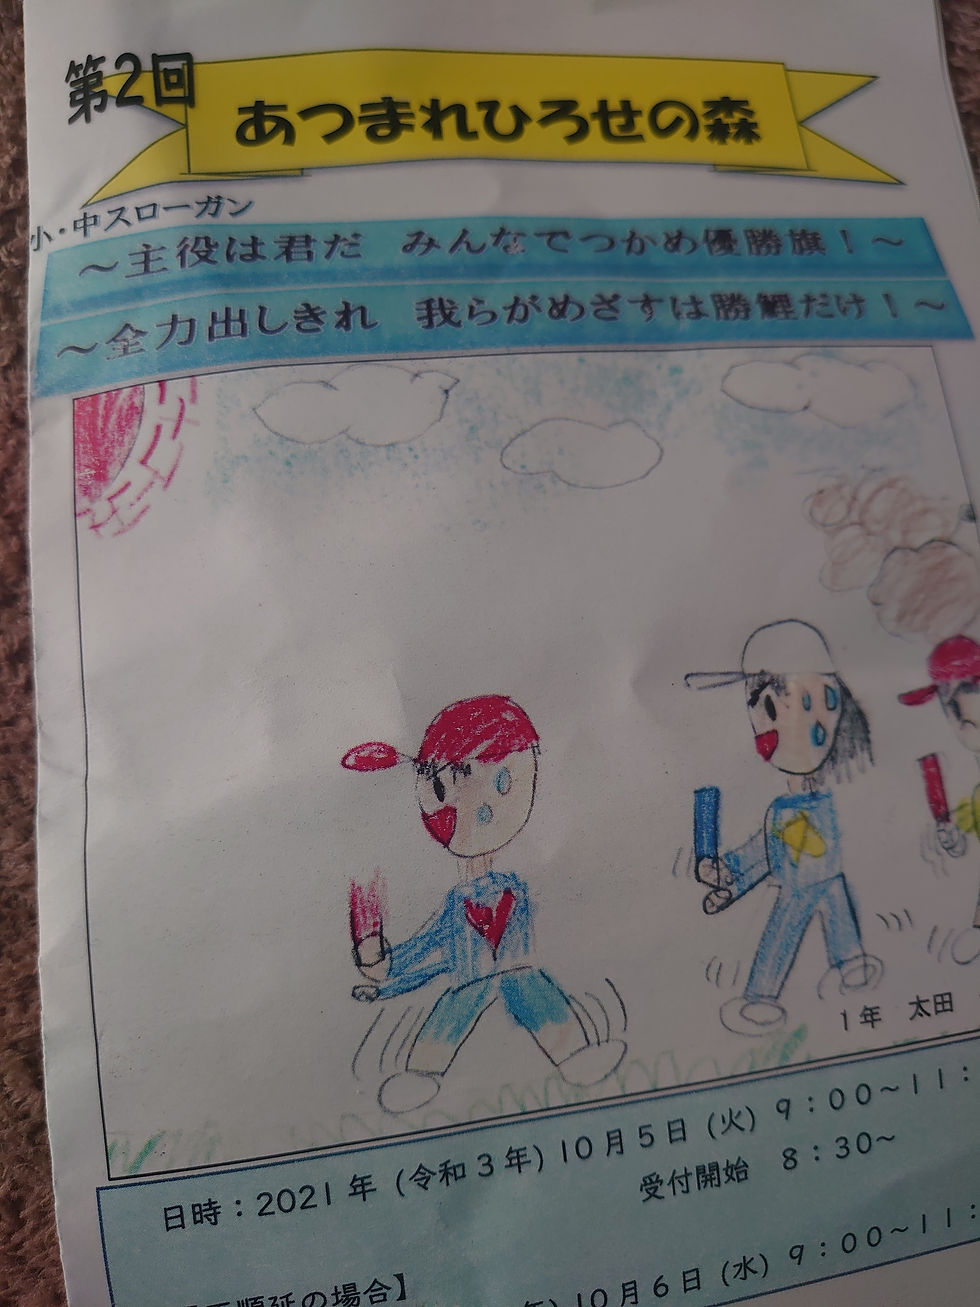 第2回
あつまれひろせの森
小・中スローガン
～主役は君だ みんなでつかめ優勝旗！～
～全力出しきれ 我らがめざすは勝鯉だけ！～
1年 太田
日時：2021年（令和3年）10月5日（火）9：00～11：
受付開始 8：30～
順延の場合】
10月6日（水）9：00～11：